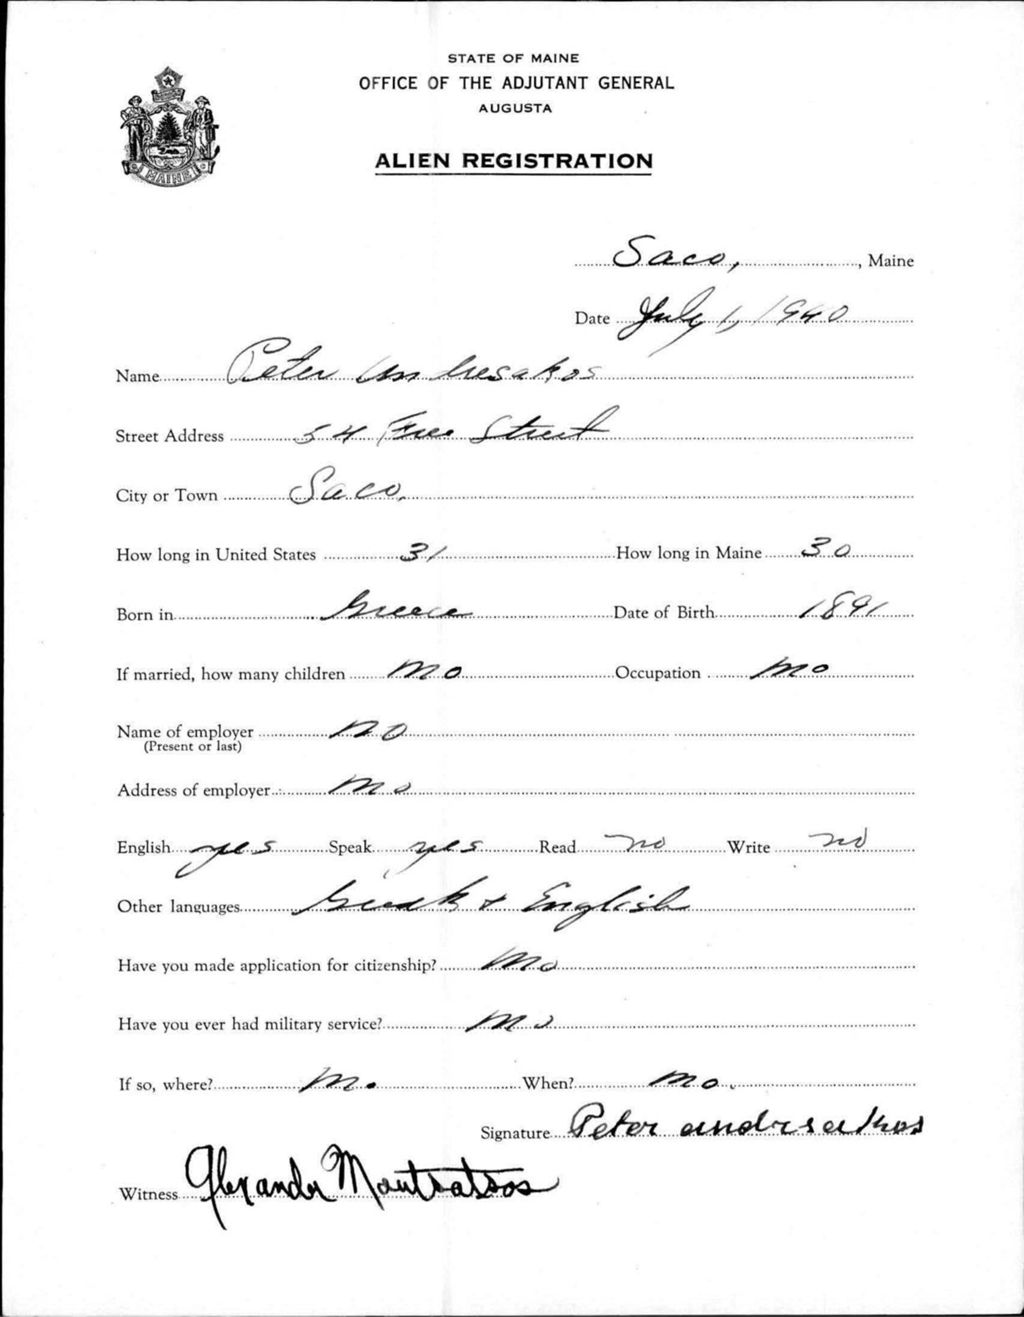 STATE OF MAINE
OFFICE OF THE ADJUTANT GENERAL
AUGUSTA
ALIEN REGISTRATION
MAINE
Saco, , Maine
Date July 1, 1940
Name Peter Andresakos
Street Address 54 Free Street
City or Town Saco,
How long in United States 31 How long in Maine 30
Born in Greece Date of Birth 1891
If married, how many children no Occupation no
Name of employer no
(Present or last)
Address of employer no
English yes Speak yes Read no Write no
Other languages Greek + English
Have you made application for citizenship? no
Have you ever had military service? no
If so, where? no When? no.
Signature Peter andrsakos
Witness Alexander